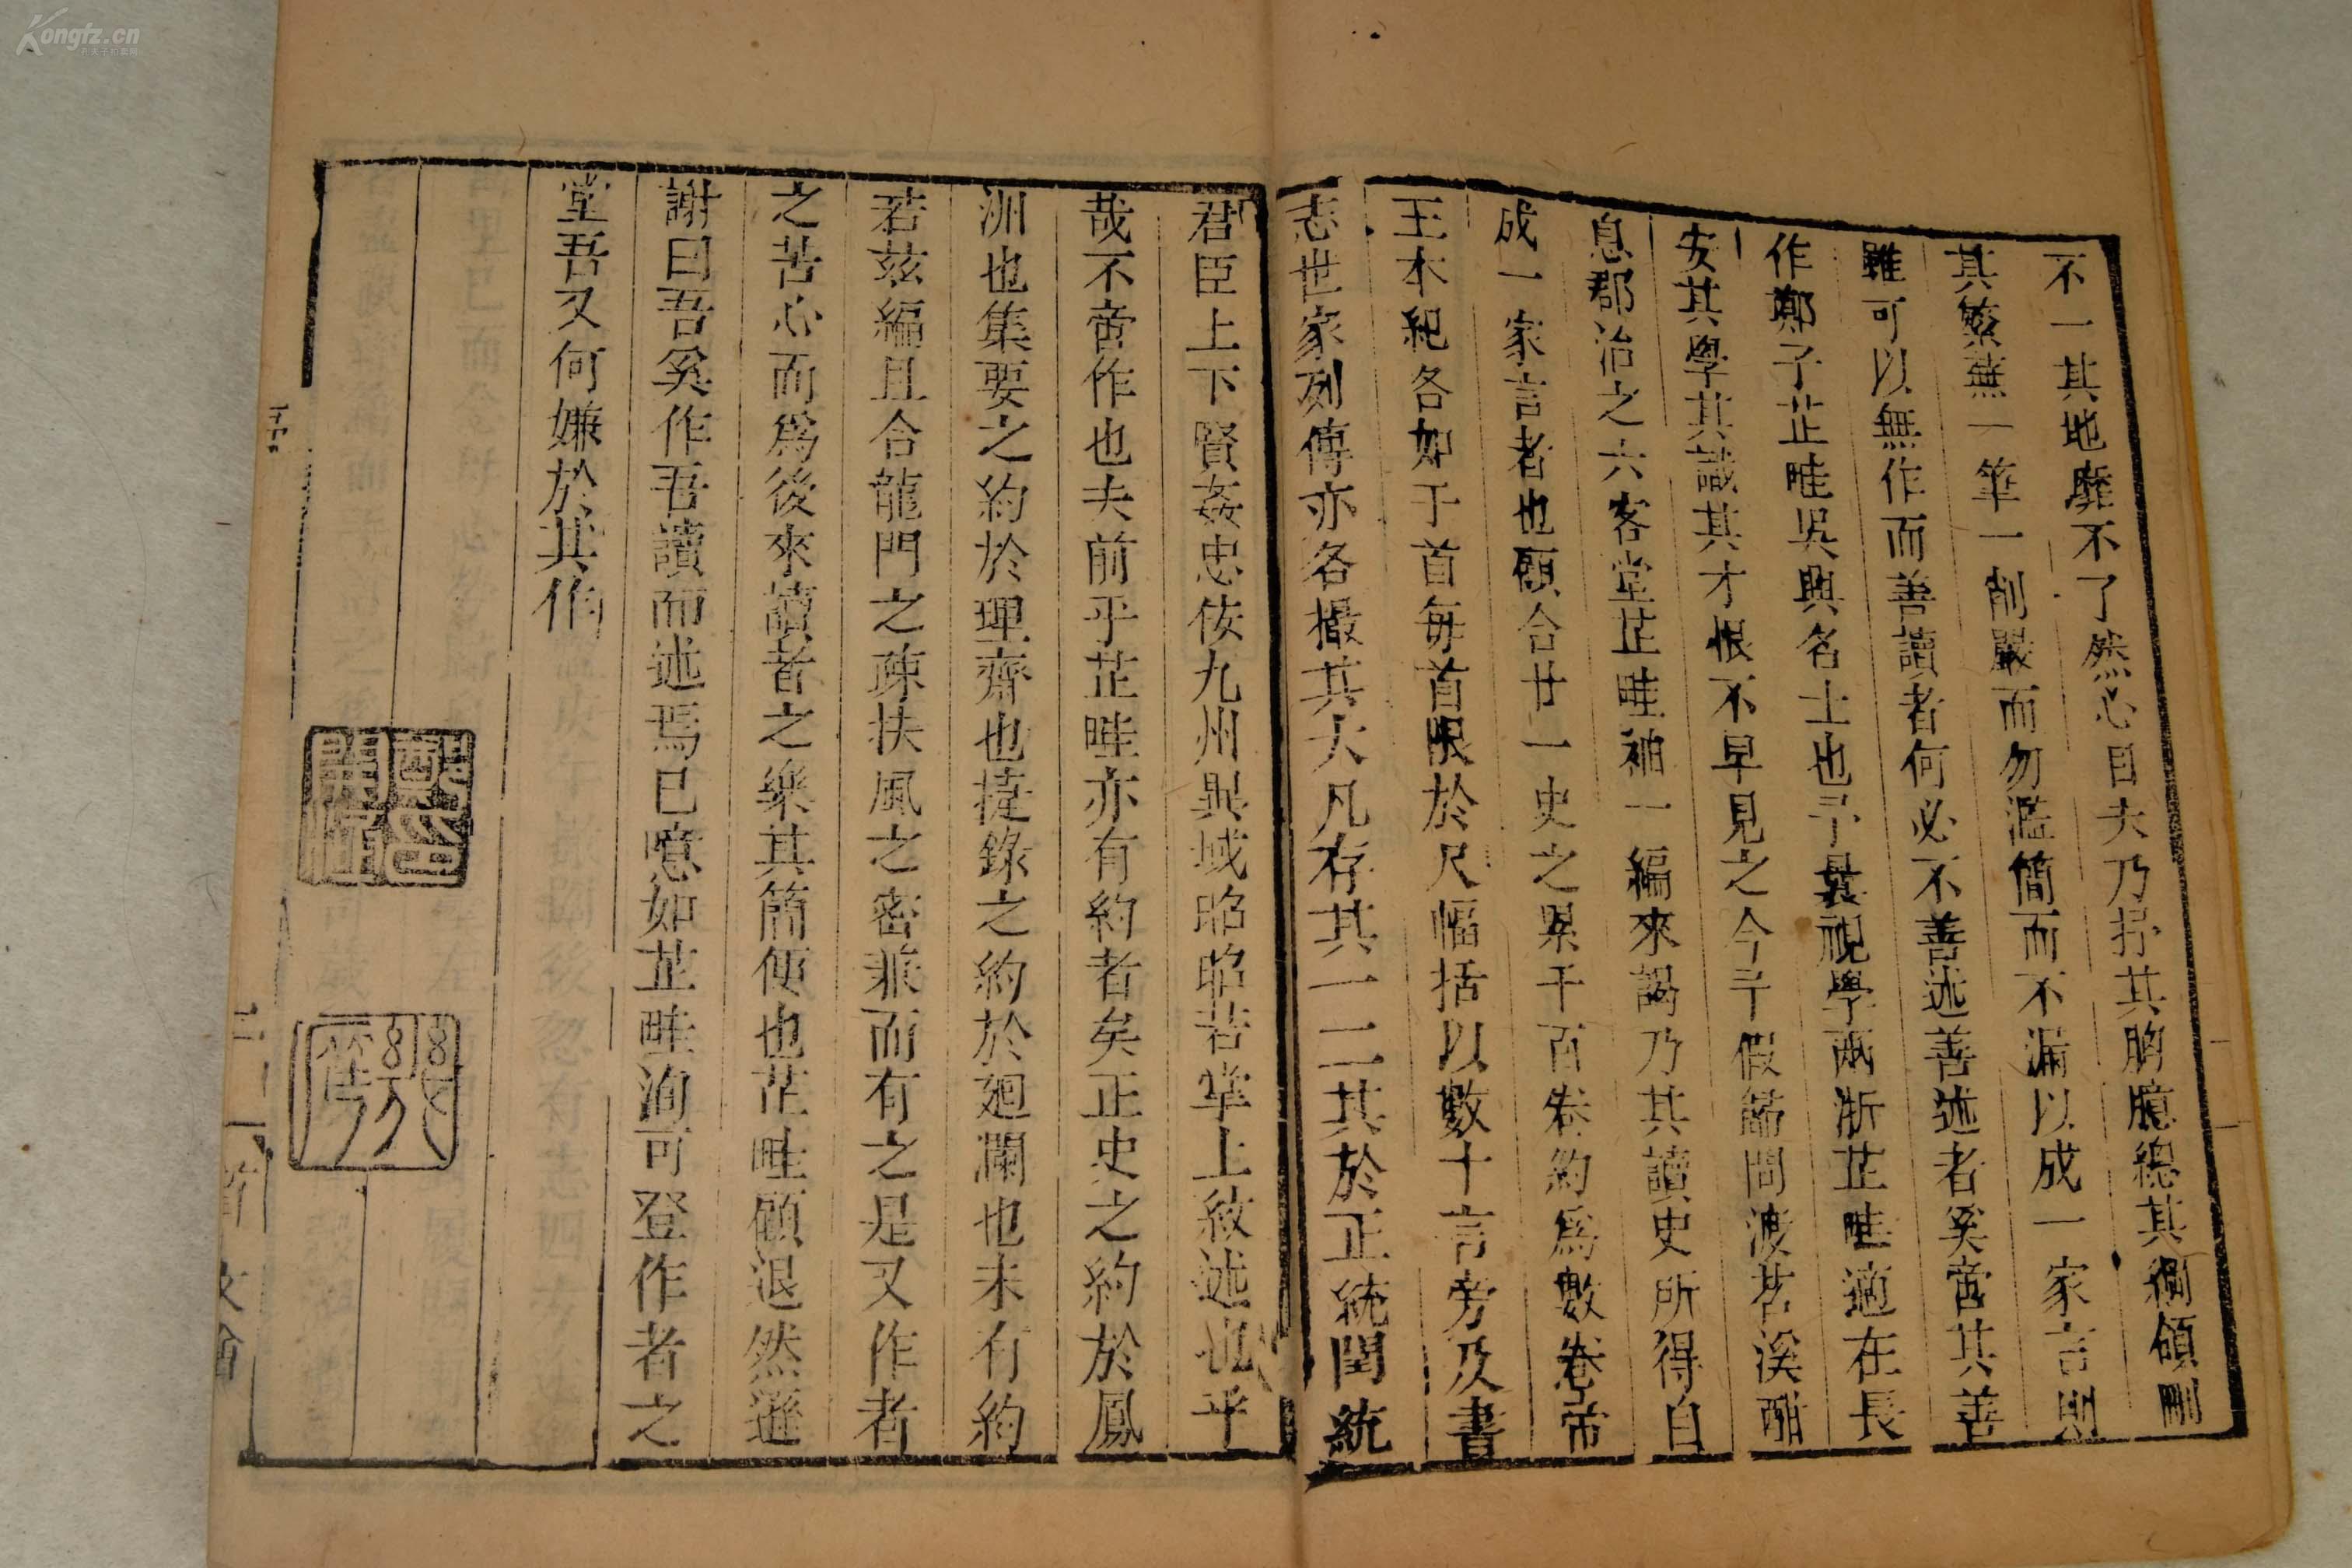 不一其地靡不了然心目夫乃抒其胸臆總其綱領刪
其繁蕪一筆一削嚴而勿濫簡而不漏以成一家言則
雖可以無作而善讀者何必不善述善述者奚啻其善
作鄭子芷畦吳興名士也予曩視學兩浙芷畦適在長
安其學其識其才恨不早見之今年假節問渡苕溪酣
息郡治之六客堂芷畦袖一編來謁乃其讀史所得自
成一家言者也願合廿一史之累千百卷約為數卷帝
王本紀各如干首每首限於尺幅括以數十言旁及書
志世家列傳亦各撮其大凡存其一二其於正統閏統
君臣上下賢姦忠佞九州異域昭昭若掌上紋述也乎
哉不啻作也夫前乎芷畦亦有約者矣正史之約於鳳
洲也集要之約於理齋也捷錄之約於廻瀾也未有約
若茲編且合龍門之疎扶風之密兼而有之是又作者
之苦心而為後來讀者之樂其簡便也芷畦顧退然遜
謝曰吾奚作吾讀而述焉已噫如芷畦洵可登作者之
堂吾又何嫌於其作
Kongfz.cn